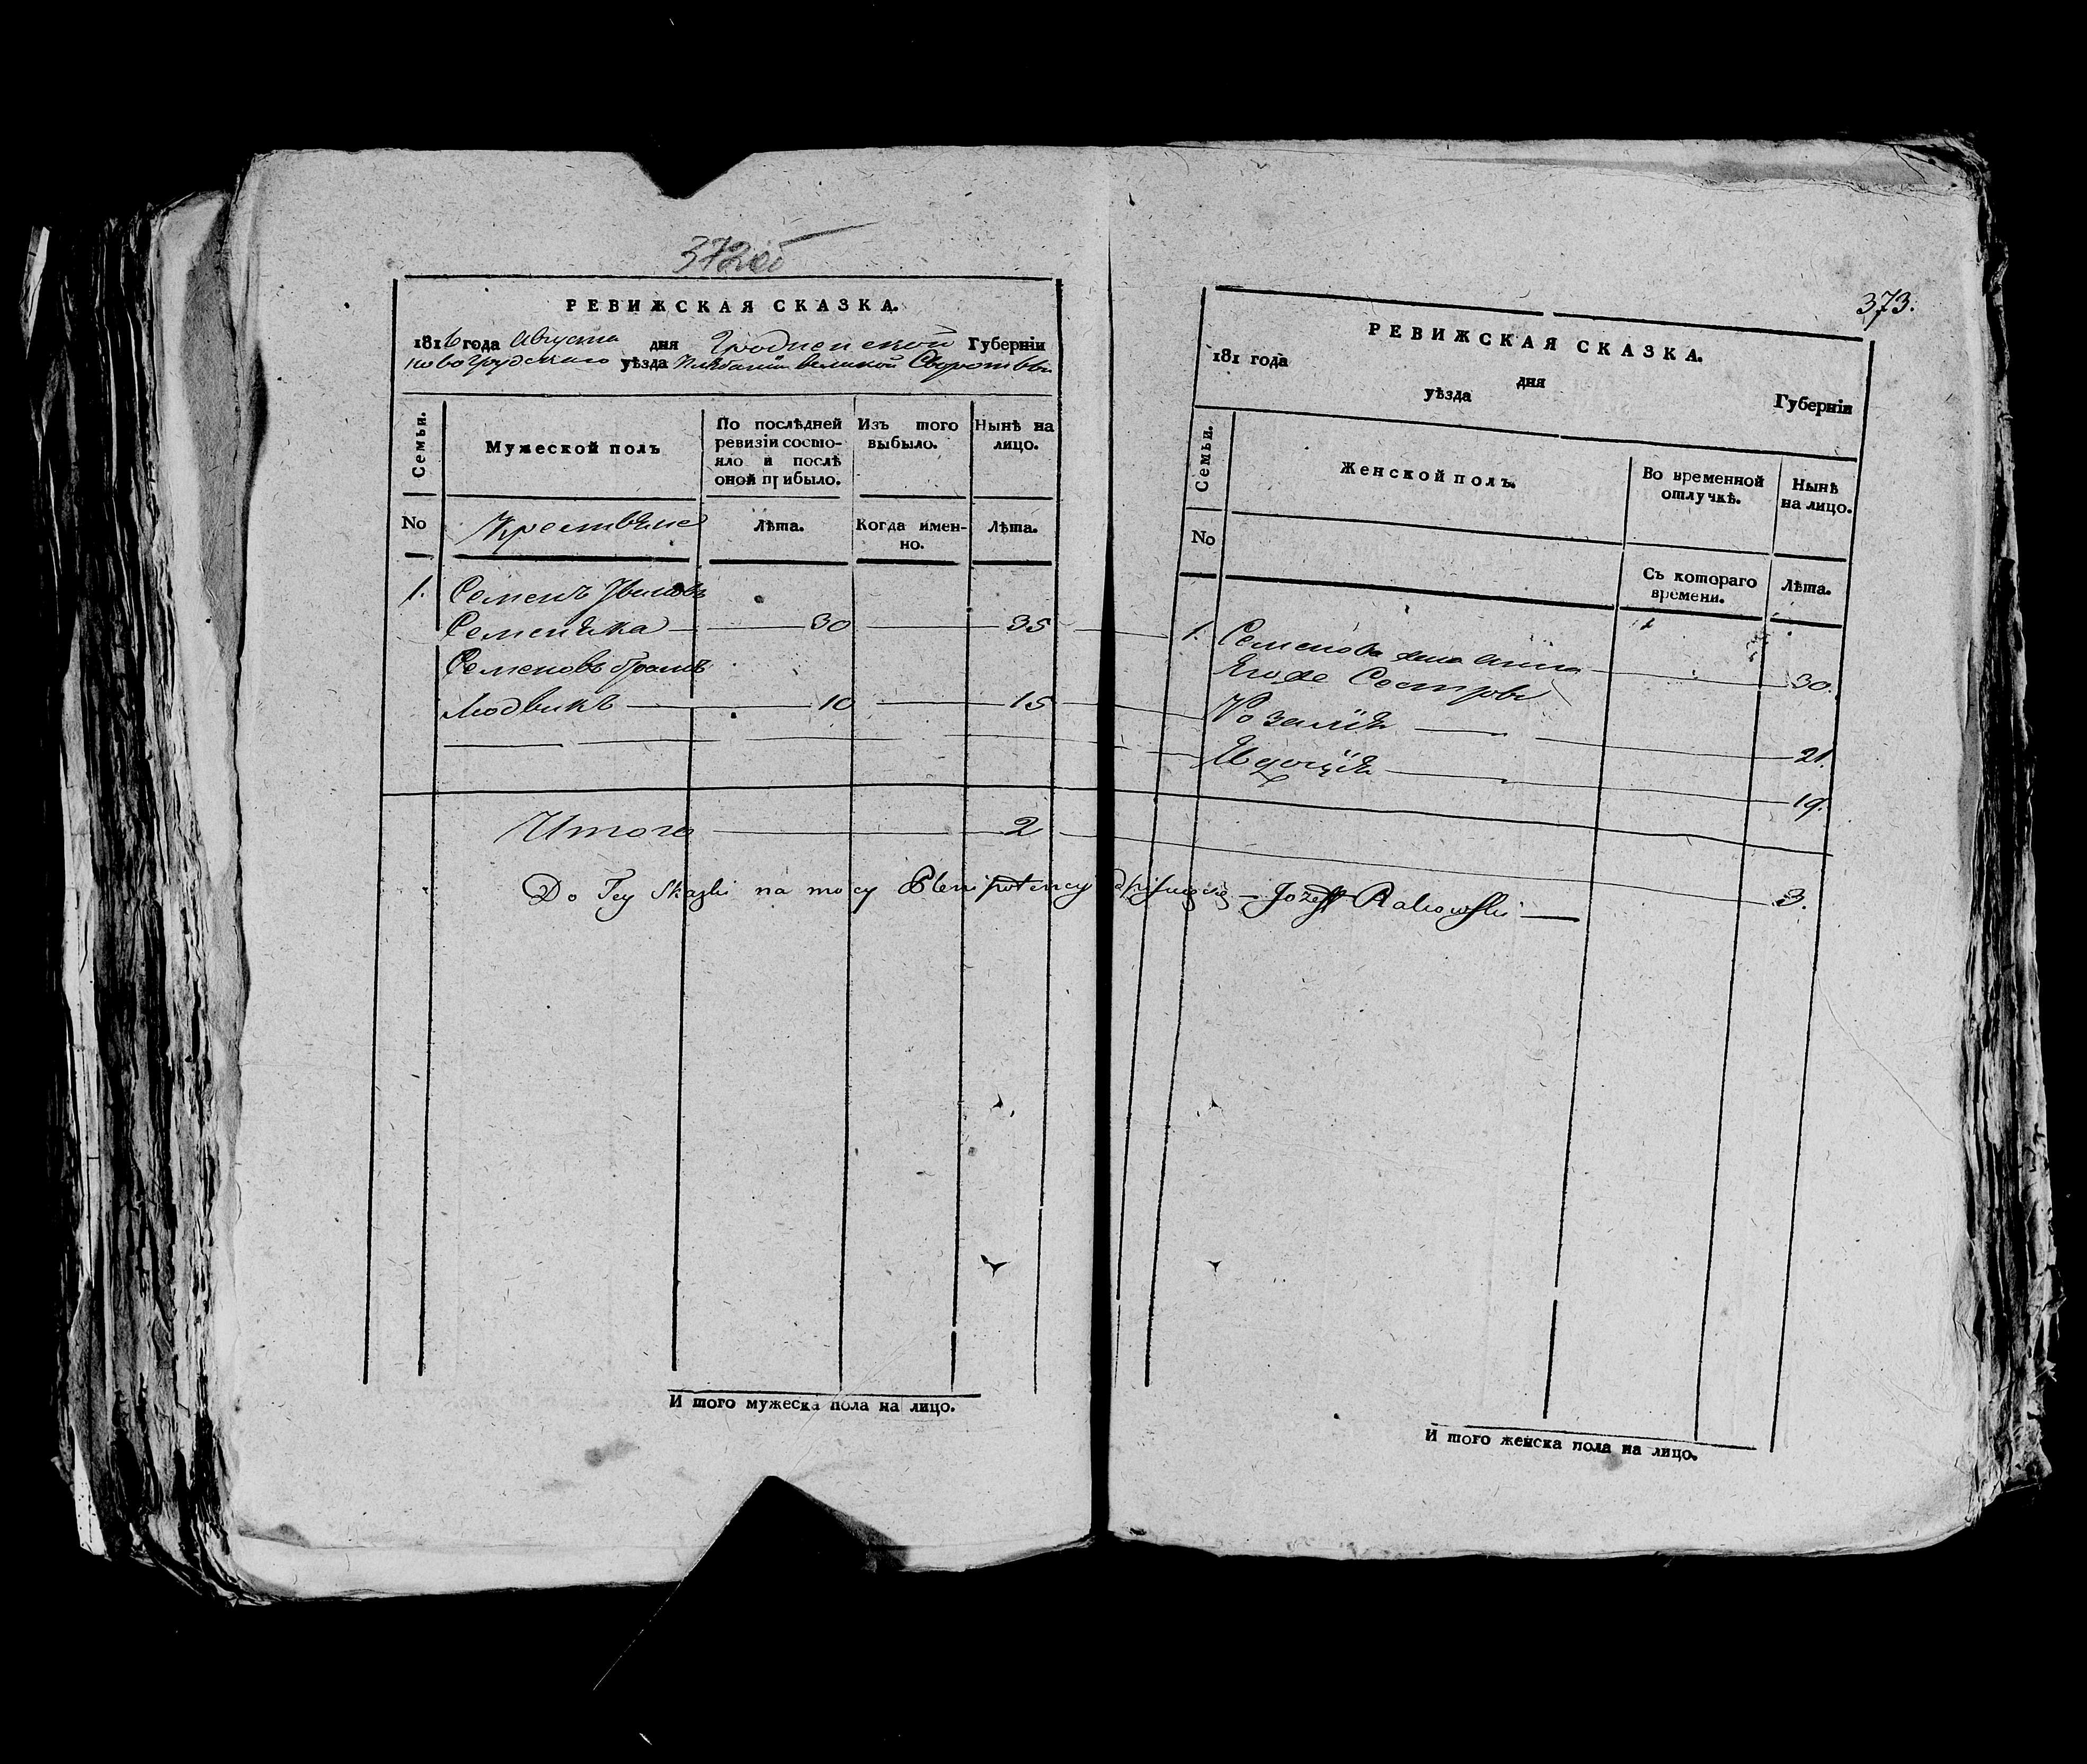 372об
РЕВИЖСКАЯ СКАЗКА.
1816 года Августа дня Гродненской Губернїи
Новогрудскаго уѣзда Плебанїи Великой Своротвы
Семьи.
Мужеской полъ
По послѣдней ревизїи состояло и послѣ оной прибыло.
Изъ того выбыло.
Нынѣ на лицо.
No
Крестьяне
Лѣта.
Когда именно.
Лѣта.
1. Семенъ Ивановъ
Семенѧка 30 35
Семеновъ братъ
Людвикъ 10 15
Итого 2
Do Tey Skazki na mocy Plenipotencyi podpisuję się Jozeff Rakowski
И того мужеска пола на лицо.
373.
РЕВИЖСКАЯ СКАЗКА.
181 года дня
уѣзда Губернїи
Семьи.
Женской полъ.
Во временной отлучкѣ.
Нынѣ на лицо.
No
Съ котораго времени.
Лѣта.
1. Семенова жена Анна 30.
Его же Сестры
Розалїя 21.
Евдоцїя 19.
3.
И того женска пола на лицо.